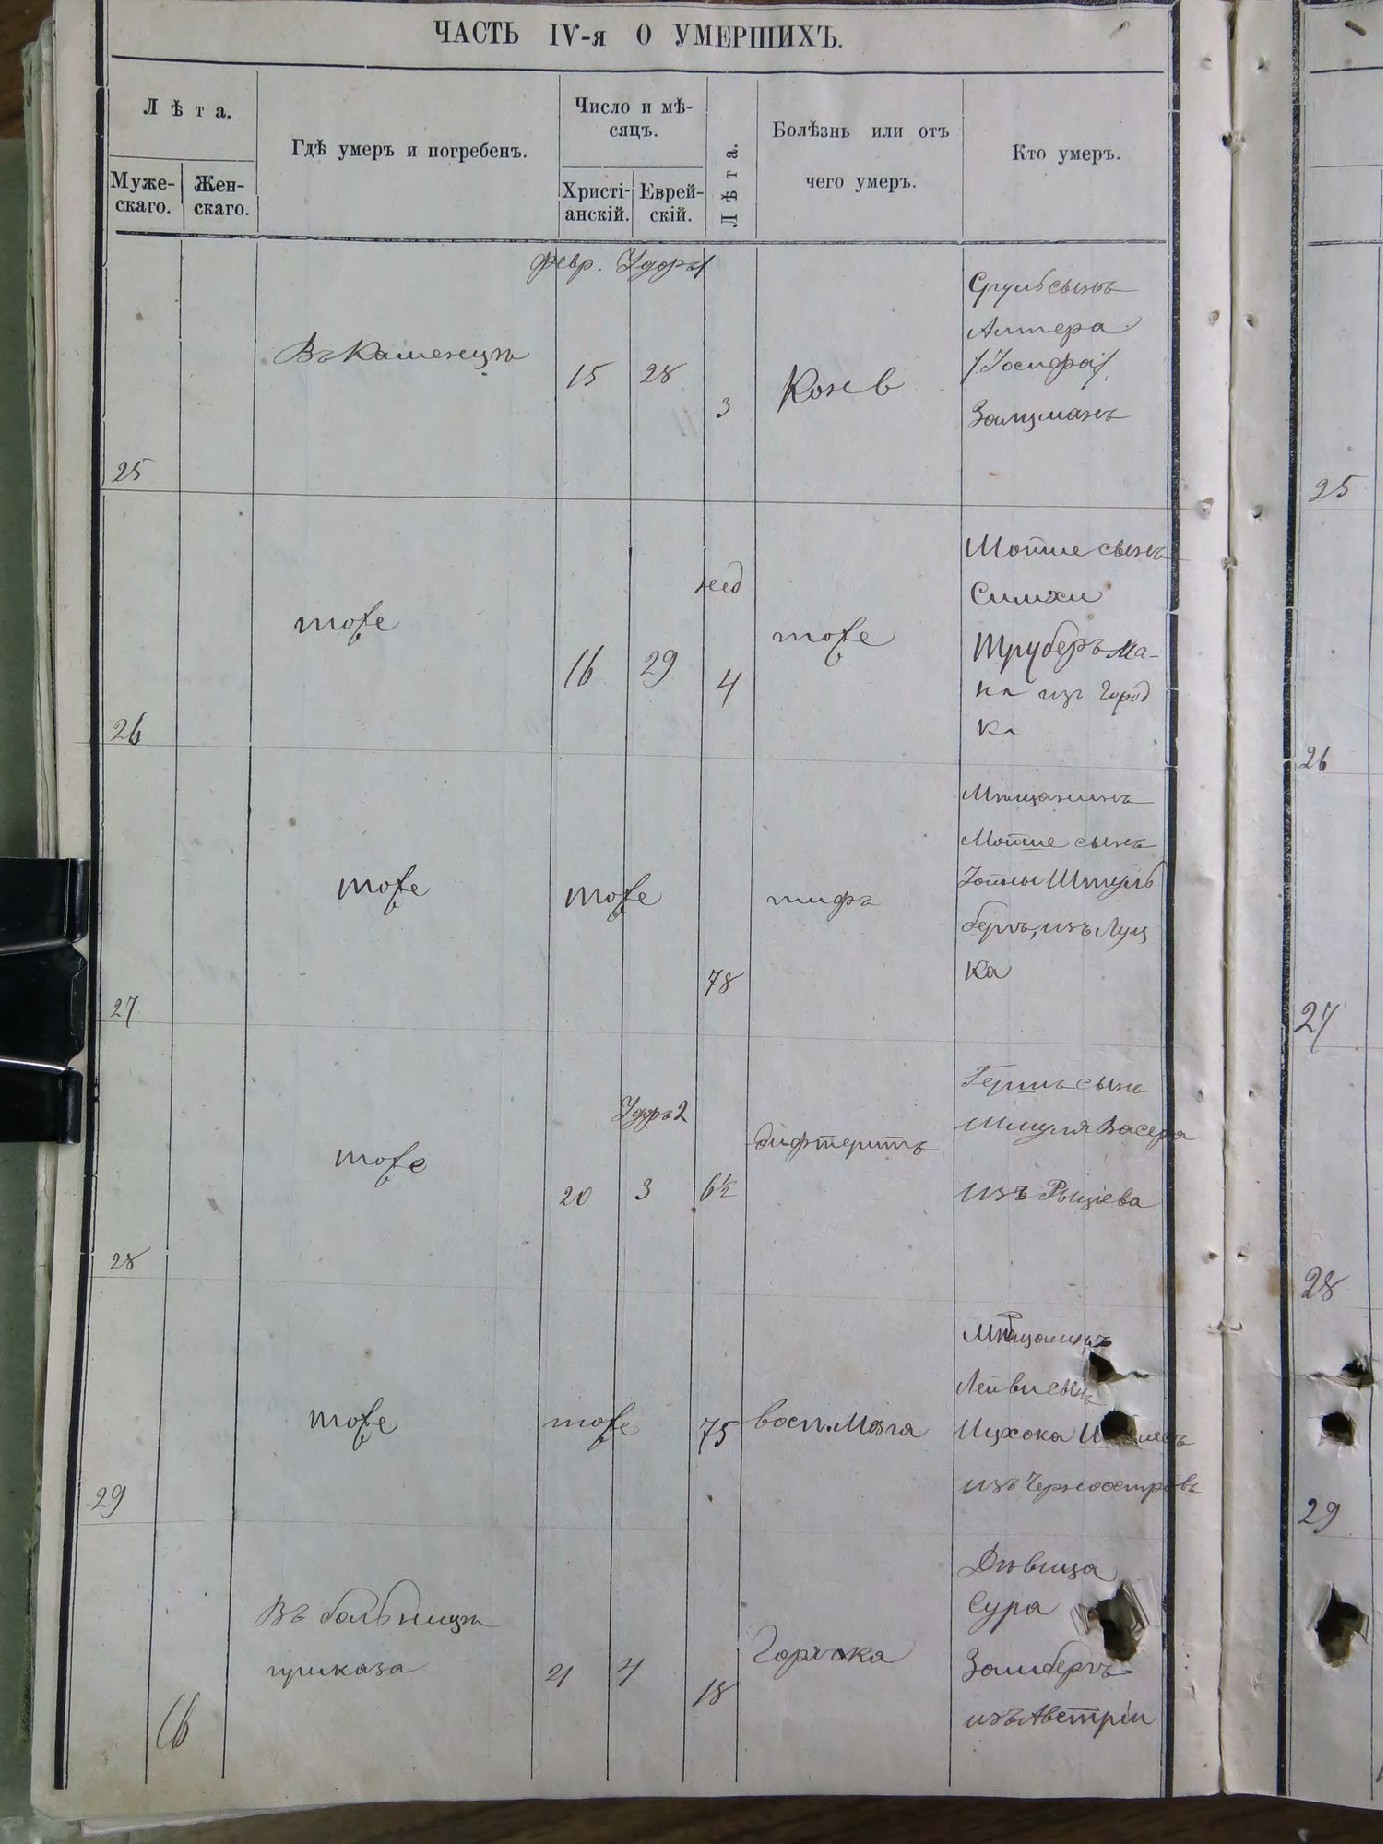 ЧАСТЬ IV-я О УМЕРШИХЪ.
Лѣта.
Муже-
скаго.
Жен-
скаго.
Гдѣ умеръ и погребенъ.
Число и мѣ-
сяцъ.
Христі-
анскій.
Еврей-
скій.
Лѣта.
Болѣзнь или отъ
чего умеръ.
Кто умеръ.
февр. Удоръ 1
25
Въ Каменцѣ
15 28
3
Коневъ
Сруль сынъ
Алтера
/Іосифа/
Залцманъ
25
26
тоже
16 29
нед
4
тоже
Мошше сынъ
Симхи
Труберъма-
на изъ Город
ка
26
27
тоже
тоже
78
тифъ
Мѣщанинъ
Мошше сынъ
Іойны Штуль
бергъ, изъ Луц
ка
27
28
тоже
20
Удоръ 2
3
6½
дифтеритъ
Гершъ сынъ
Шмуля Васера
изъ
28
29
тоже
тоже
75
восп. Мозга
Мѣщанинъ
Лейви сынъ
Ицхока
изъ Черноостровъ
29
16
Въ больницѣ
приказа
21 4
18
Горячка
Дѣвица
Сура
Замбергъ
изъ Австріи